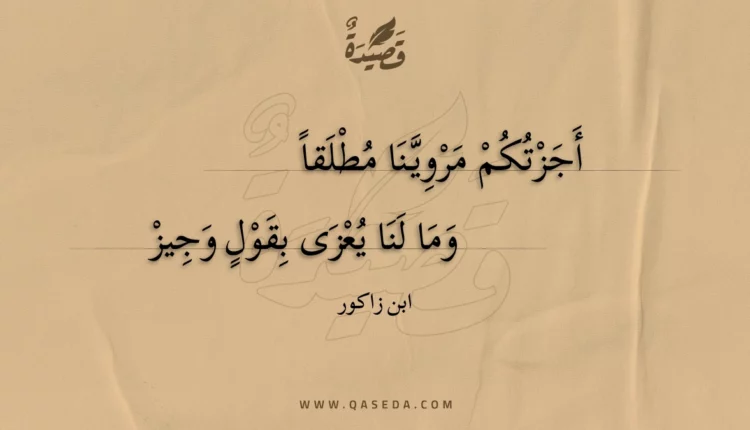 قَصِيدَةٌ
أَجَزْتُكُمْ مَرْوِيَّنَا مُطْلَقاً
وَمَا لَنَا يُعْزَى بِقَوْلٍ وَجِيزْ
ابن زاكور
WWW.QASEDA.COM